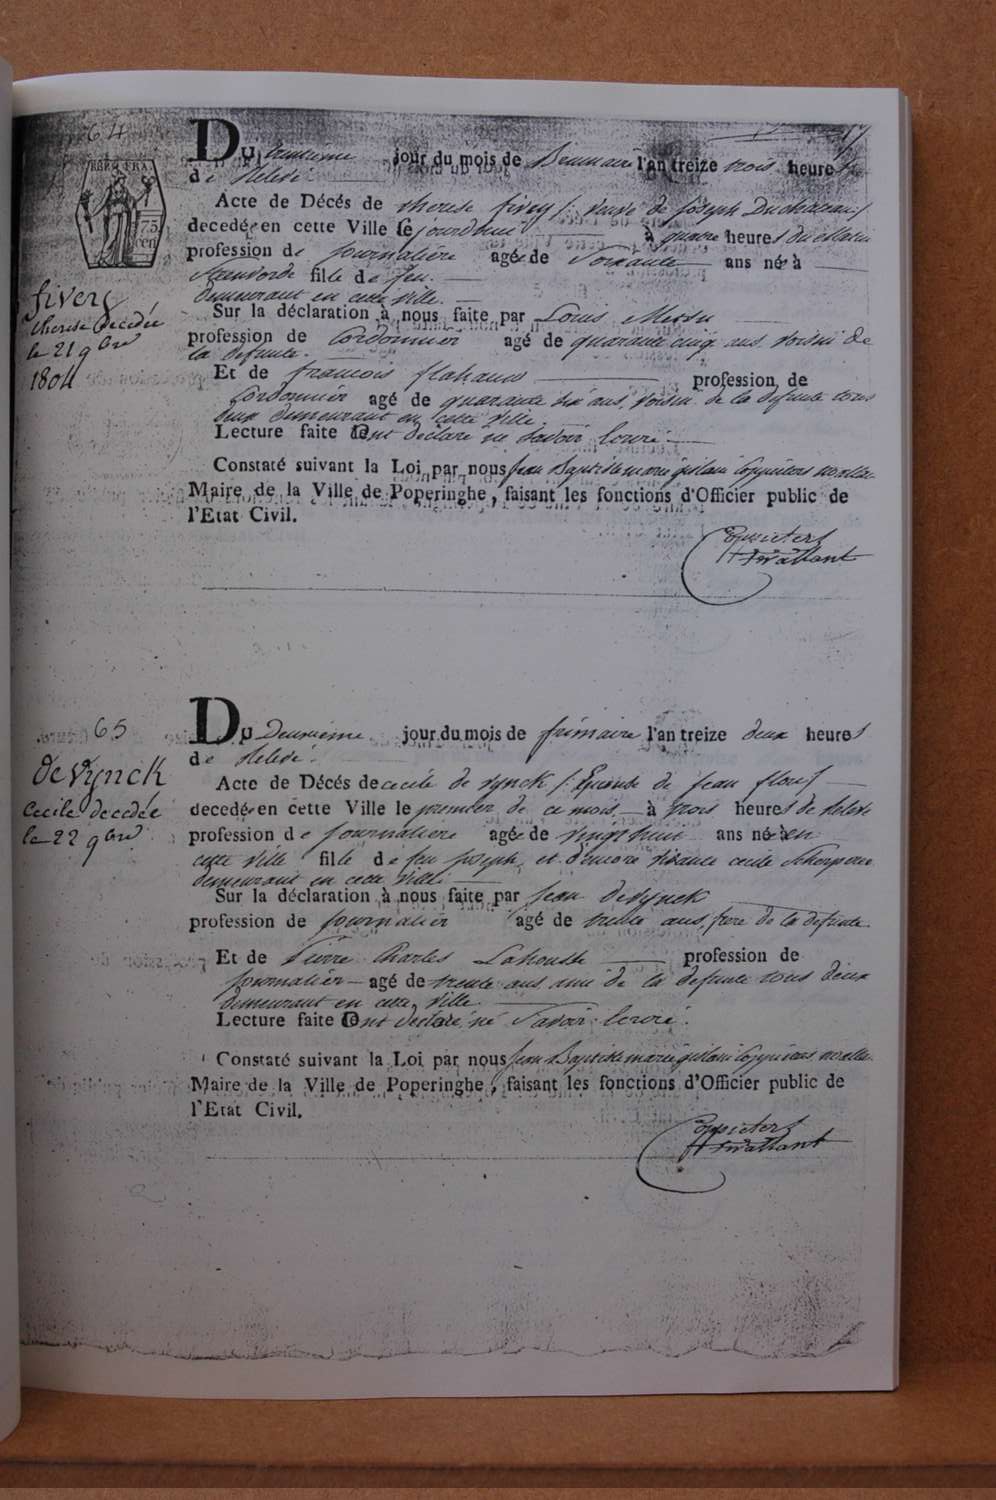 64
REP. FRA.
75
cen
Du trentieme jour du mois de Brumaire l'an treize trois heures
de Relevé.
Acte de Décés de therese fivey / veuve de joseph
decedée en cette Ville le jourdhui à quatre heures du matin
profession de journalière agée de Soixante ans né à
Steenvorde fille de feu
demeurant en cette ville.
fivery
therese decedée
le 21 9bre
1804
Sur la déclaration à nous faite par Louis
profession de Cordonnier agé de quarante cinq ans voisin de
la defunte.
Et de francois flahaus profession de
Cordonnier agé de quarante six ans, voisin de la defunte tous
deux demeurant en cette ville.
Lecture faite ont declaré ne Savoir Ecrire
Constaté suivant la Loi par nous Jean Baptiste marie guislain Coppieters
Maire de la Ville de Poperinghe, faisant les fonctions d'Officier public de
l'Etat Civil.
Coppieters
65
Du Deuxieme jour du mois de frimaire l'an treize deux heures
de Relevé.
devynck
Cecile decedée
le 22 9bre
Acte de Décés de cecile de vynck / Epouse de jean flores /
decedée en cette Ville le premier de ce mois à trois heures de Relevé
profession de journaliere agée de vingt huit ans née en
cette ville fille de feu joseph, et d'encore vivante cecile
demeurant en cette ville
Sur la déclaration à nous faite par jean devynck
profession de journalier agé de trente ans, frere de la defunte.
Et de Pierre Charles Lahousse profession de
journalier agé de trente ans ami de la defunte tous deux
demeurant en cette ville.
Lecture faite ont declaré ne Savoir Ecrire.
Constaté suivant la Loi par nous Jean Baptiste marie guislain Coppieters
Maire de la Ville de Poperinghe, faisant les fonctions d'Officier public de
l'Etat Civil.
Coppieters